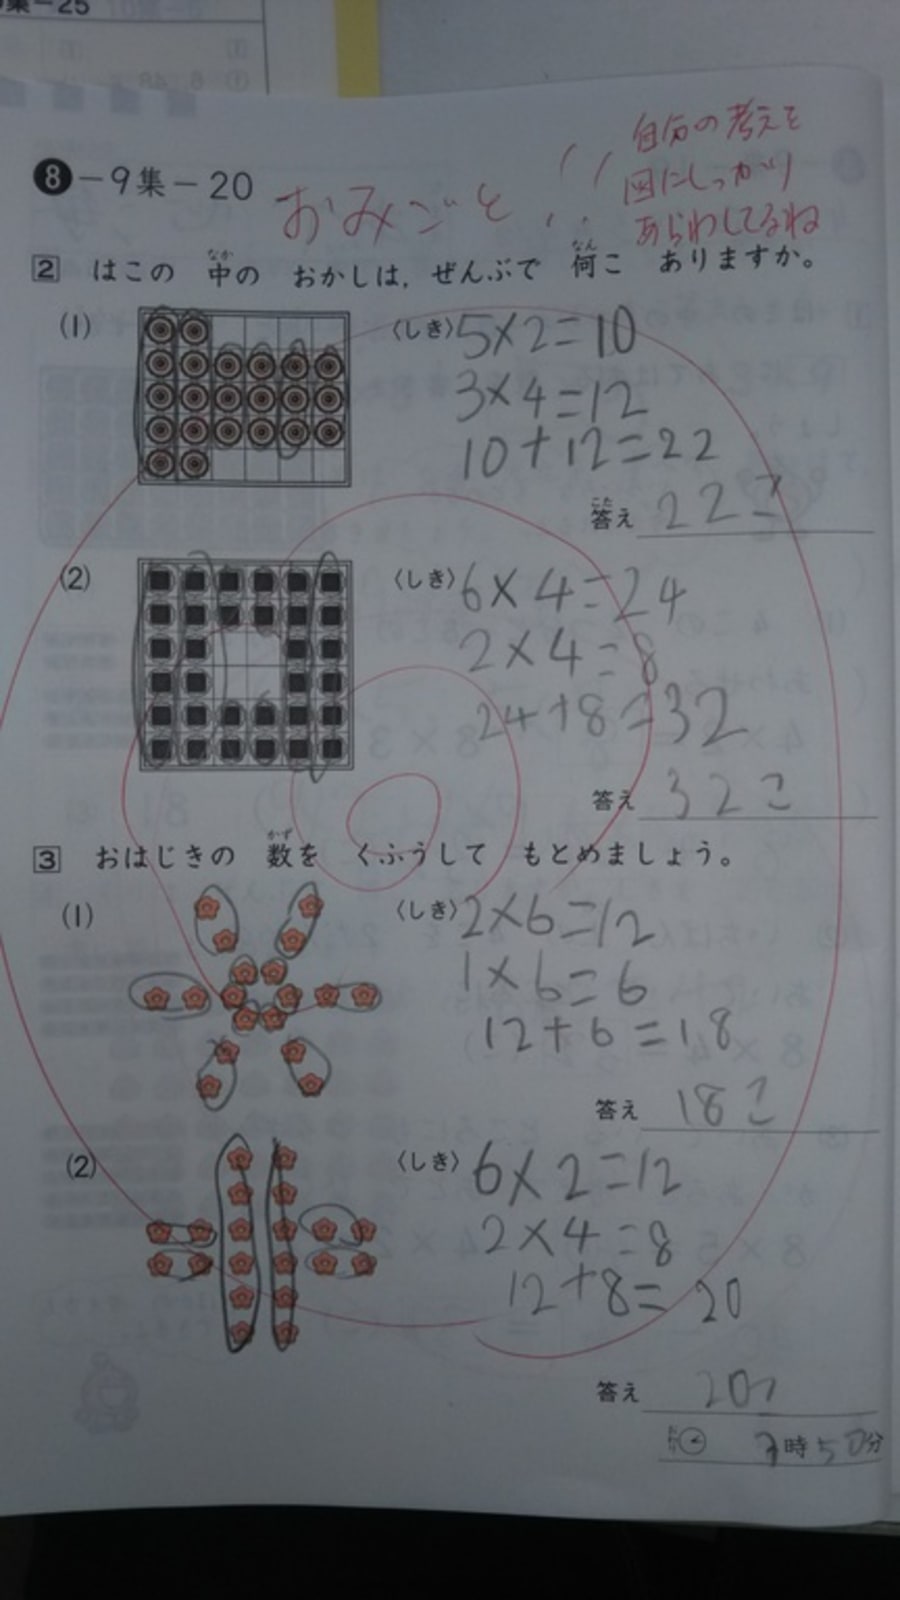 集-25
8-9集-20
おみごと!!
自分の考えを
図にしっかり
あらわしてるね
2 はこの 中の おかしは, ぜんぶで 何こ ありますか。
なか
なん
(1)
〈しき〉5×2=10
3×4=12
10+12=22
答え 22こ
こた
(2)
〈しき〉6×4=24
2×4=8
24+8=32
答え 32こ
3 おはじきの 数を くふうして もとめましょう。
かず
(1)
〈しき〉2×6=12
1×6=6
12+6=18
答え 18こ
(2)
〈しき〉6×2=12
2×4=8
12+8=20
答え 20こ
時50分